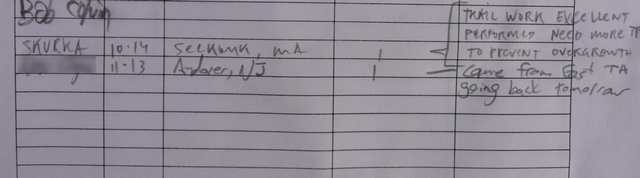 Bob
TRAIL WORK EXCELLENT
PERFORMED NEED MORE
SKURKA 10-14 SEEKONK, MA 1 TO PREVENT OVERGROWTH
11-13 Andover, NJ 1 Came from East TA
going back tomorrow